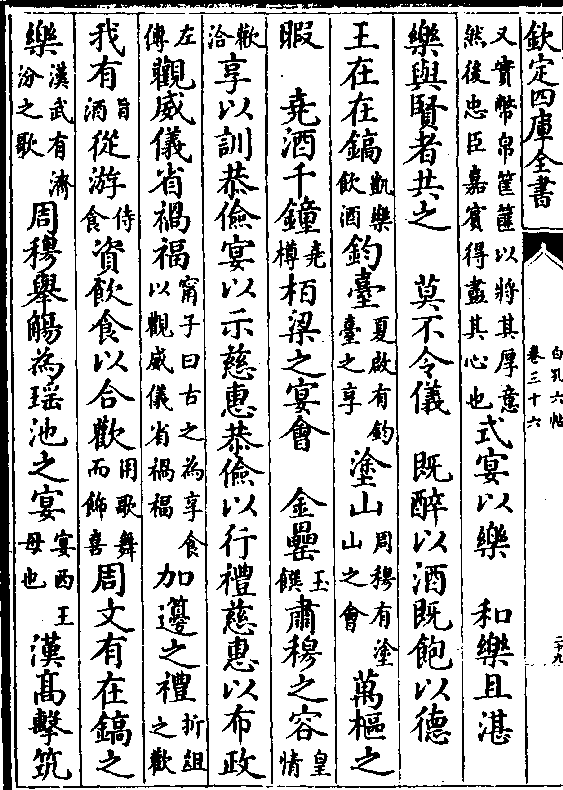 欽定四庫全書
白孔六帖
卷三十六
二十九
又實幣帛筐篚以將其厚意然後忠臣嘉賓得盡其心也式宴以樂 和樂且湛
樂與賢者共之 莫不令儀 既醉以酒既飽以德
王在在鎬凱樂飲酒鈞臺夏啟有鈞臺之享塗山周穆有塗山之會萬樞之
暇 堯酒千鐘堯樽栢梁之宴會 金罍玉饌肅穆之容皇情
歡洽享以訓恭儉宴以示慈惠恭儉以行禮慈惠以布政
左傳觀威儀省禍福甯子曰古之為享食以觀威儀省禍福加籩之禮折俎之歡
我有旨酒從游侍食資飲食以合歡用歌舞而飾喜周文有在鎬之
樂漢武有濟汾之歌周穆舉觴為瑶池之宴宴西王母也漢髙擊筑